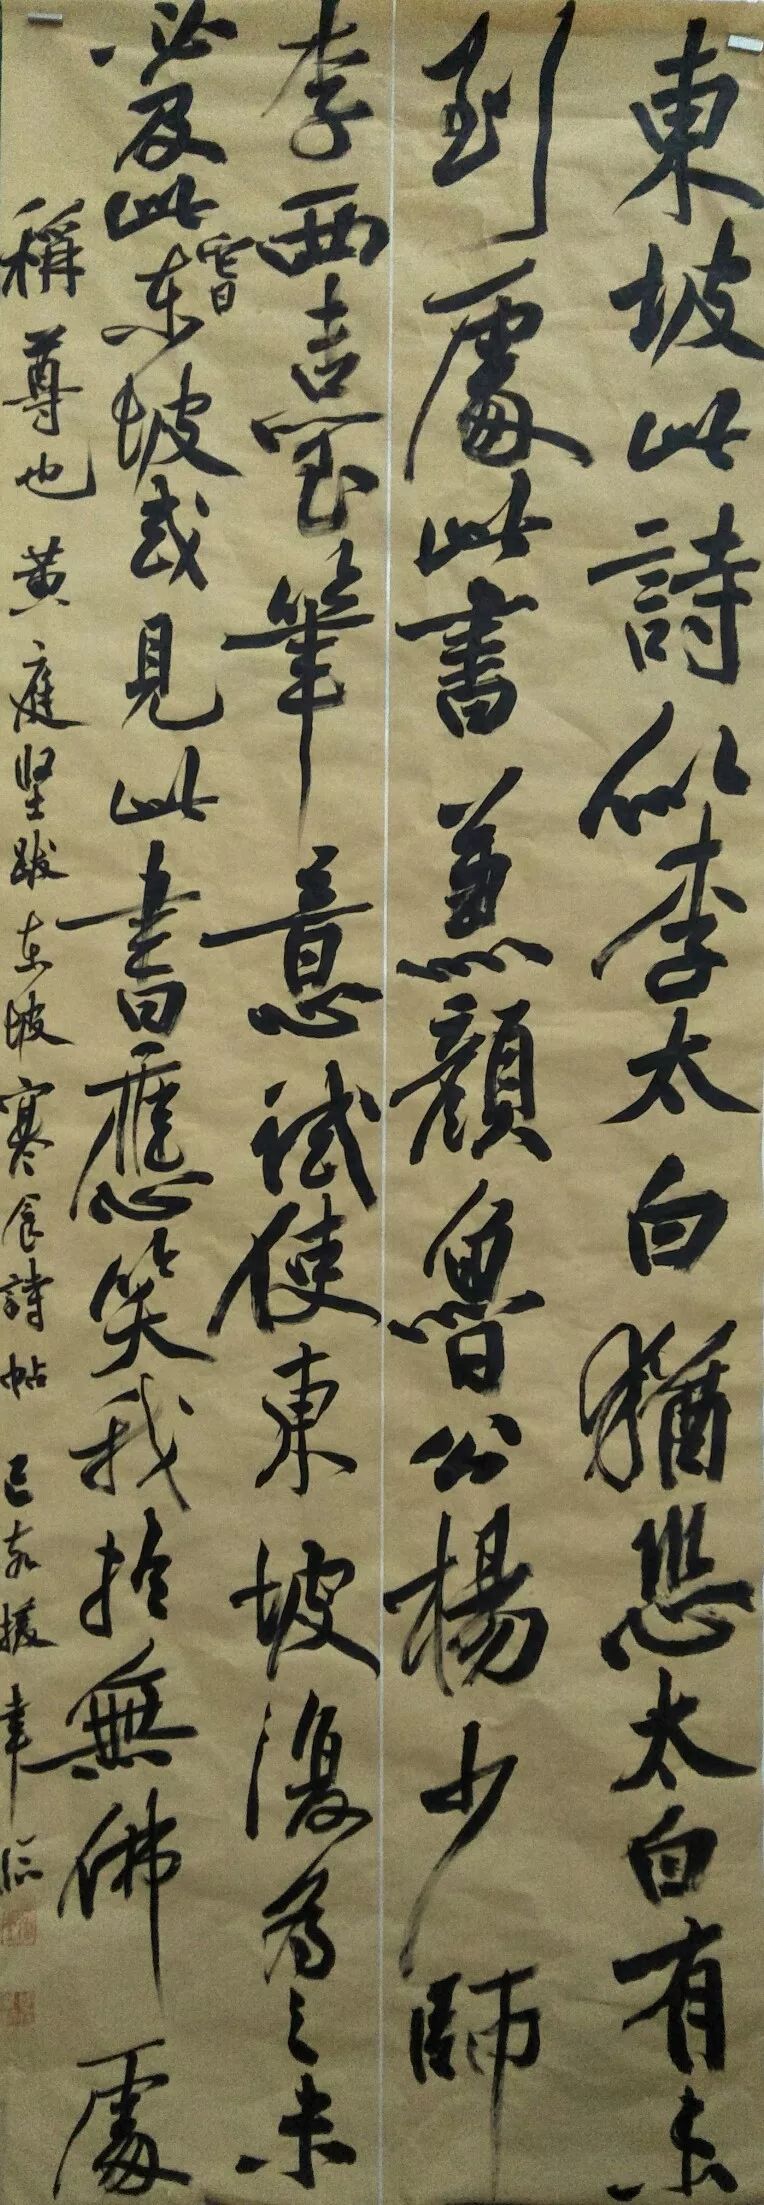 東坡此詩似李太白猶恐太白有未
到處此書兼顏魯公楊少師
李西臺筆意試使東坡復為之未
必及此它日东坡或見此書應笑我於無佛處
稱尊也 黄庭坚跋东坡寒食詩帖 己亥 临